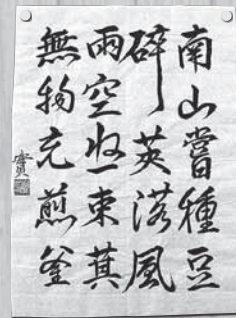 南山嘗種豆
碎莢落風
雨空收一束萁
無物充煎釜